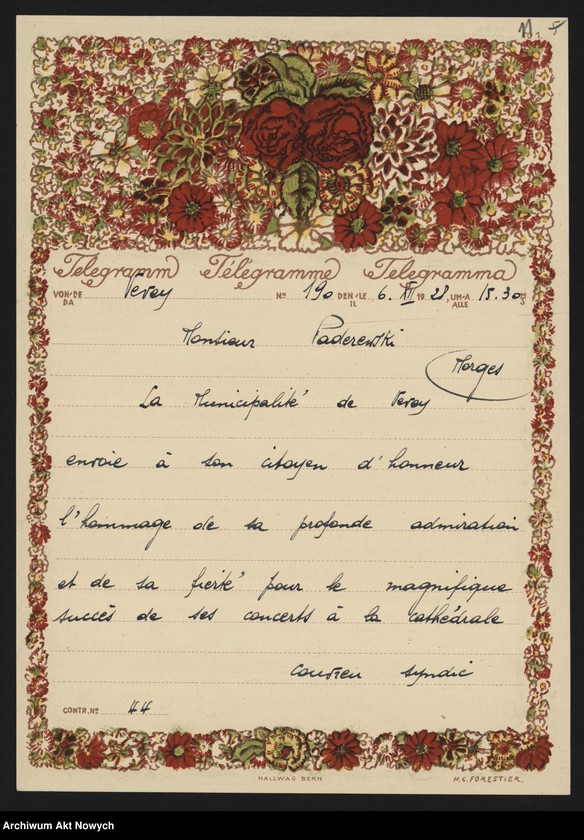 Telegramm Télégramme Telegramma
VON·DE DA Vevey No 190 DEN/LE IL 6. XII 1928, UM·A ALLE 15.30
Monsieur Paderewski
Morges
La Municipalité de Vevey
envoie à son citoyen d'honneur
l'hommage de sa profonde admiration
et de sa fierté pour le magnifique
succès de ses concerts à la cathédrale
Couvreu syndic
CONTR. No 44
HALLWAG BERN
H.C. FORESTIER.
Archiwum Akt Nowych